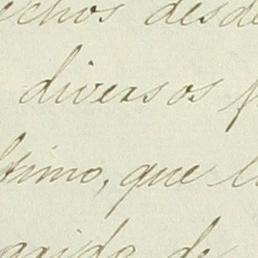 echos desde
diversos
ltimo, que
de